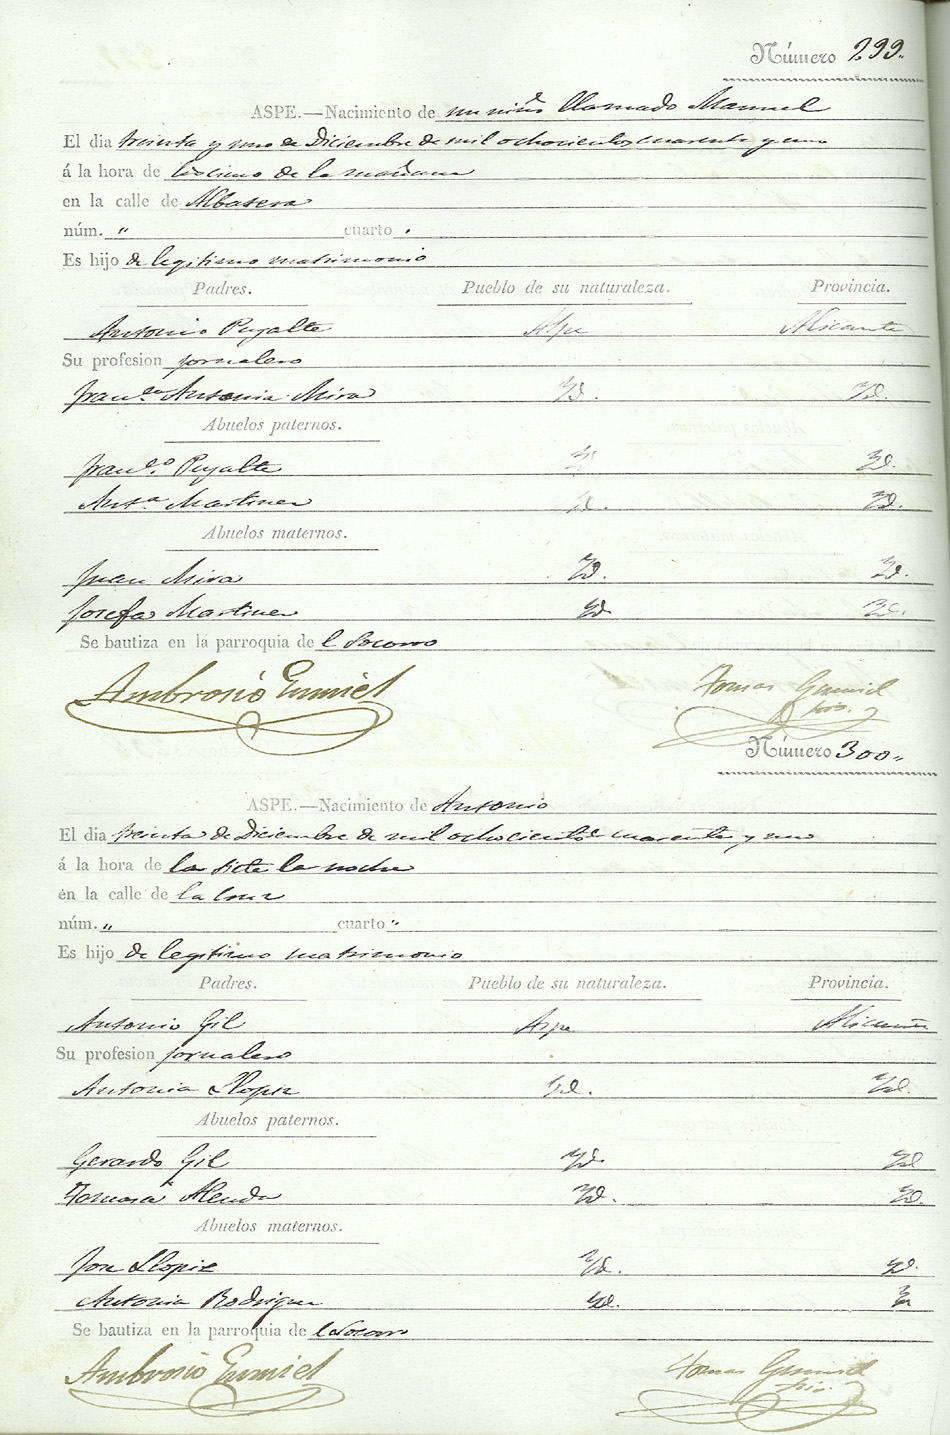 Número 299.
ASPE.—Nacimiento de un niño llamado Manuel
El dia treinta y uno de Diciembre de mil ochocientos cuarenta y uno
á la hora de las cinco de la mañana
en la calle de Albatera
núm. " cuarto "
Es hijo de legitimo matrimonio
Padres. Pueblo de su naturaleza. Provincia.
Antonio Puyalte Aspe Alicante
Su profesion jornalero
Franca Antonia Mira Yd. Yd.
Abuelos paternos.
Franco Puyalte Yd. Yd.
Anta Martinez Yd. Yd.
Abuelos maternos.
Juan Mira Yd. Yd.
Josefa Martinez Yd. Yd.
Se bautiza en la parroquia de l Socorro
Ambrosio Gumiel Tomas Gumiel
Número 300.
ASPE.—Nacimiento de Antonio
El dia treinta de Diciembre de mil ochocientos cuarenta y uno
á la hora de las siete la noche
en la calle de la Cruz
núm. " cuarto "
Es hijo de legitimo matrimonio
Padres. Pueblo de su naturaleza. Provincia.
Antonio Gil Aspe Alicante
Su profesion jornalero
Antonia Llopiz Yd. Yd.
Abuelos paternos.
Gerardo Gil Yd. Yd
Tomasa Alenda Yd. Yd.
Abuelos maternos.
Jose Llopiz Yd. Yd.
Antonia Rodriguez Yd. Yd
Se bautiza en la parroquia de l Socorro
Ambrosio Gumiel Tomas Gumiel